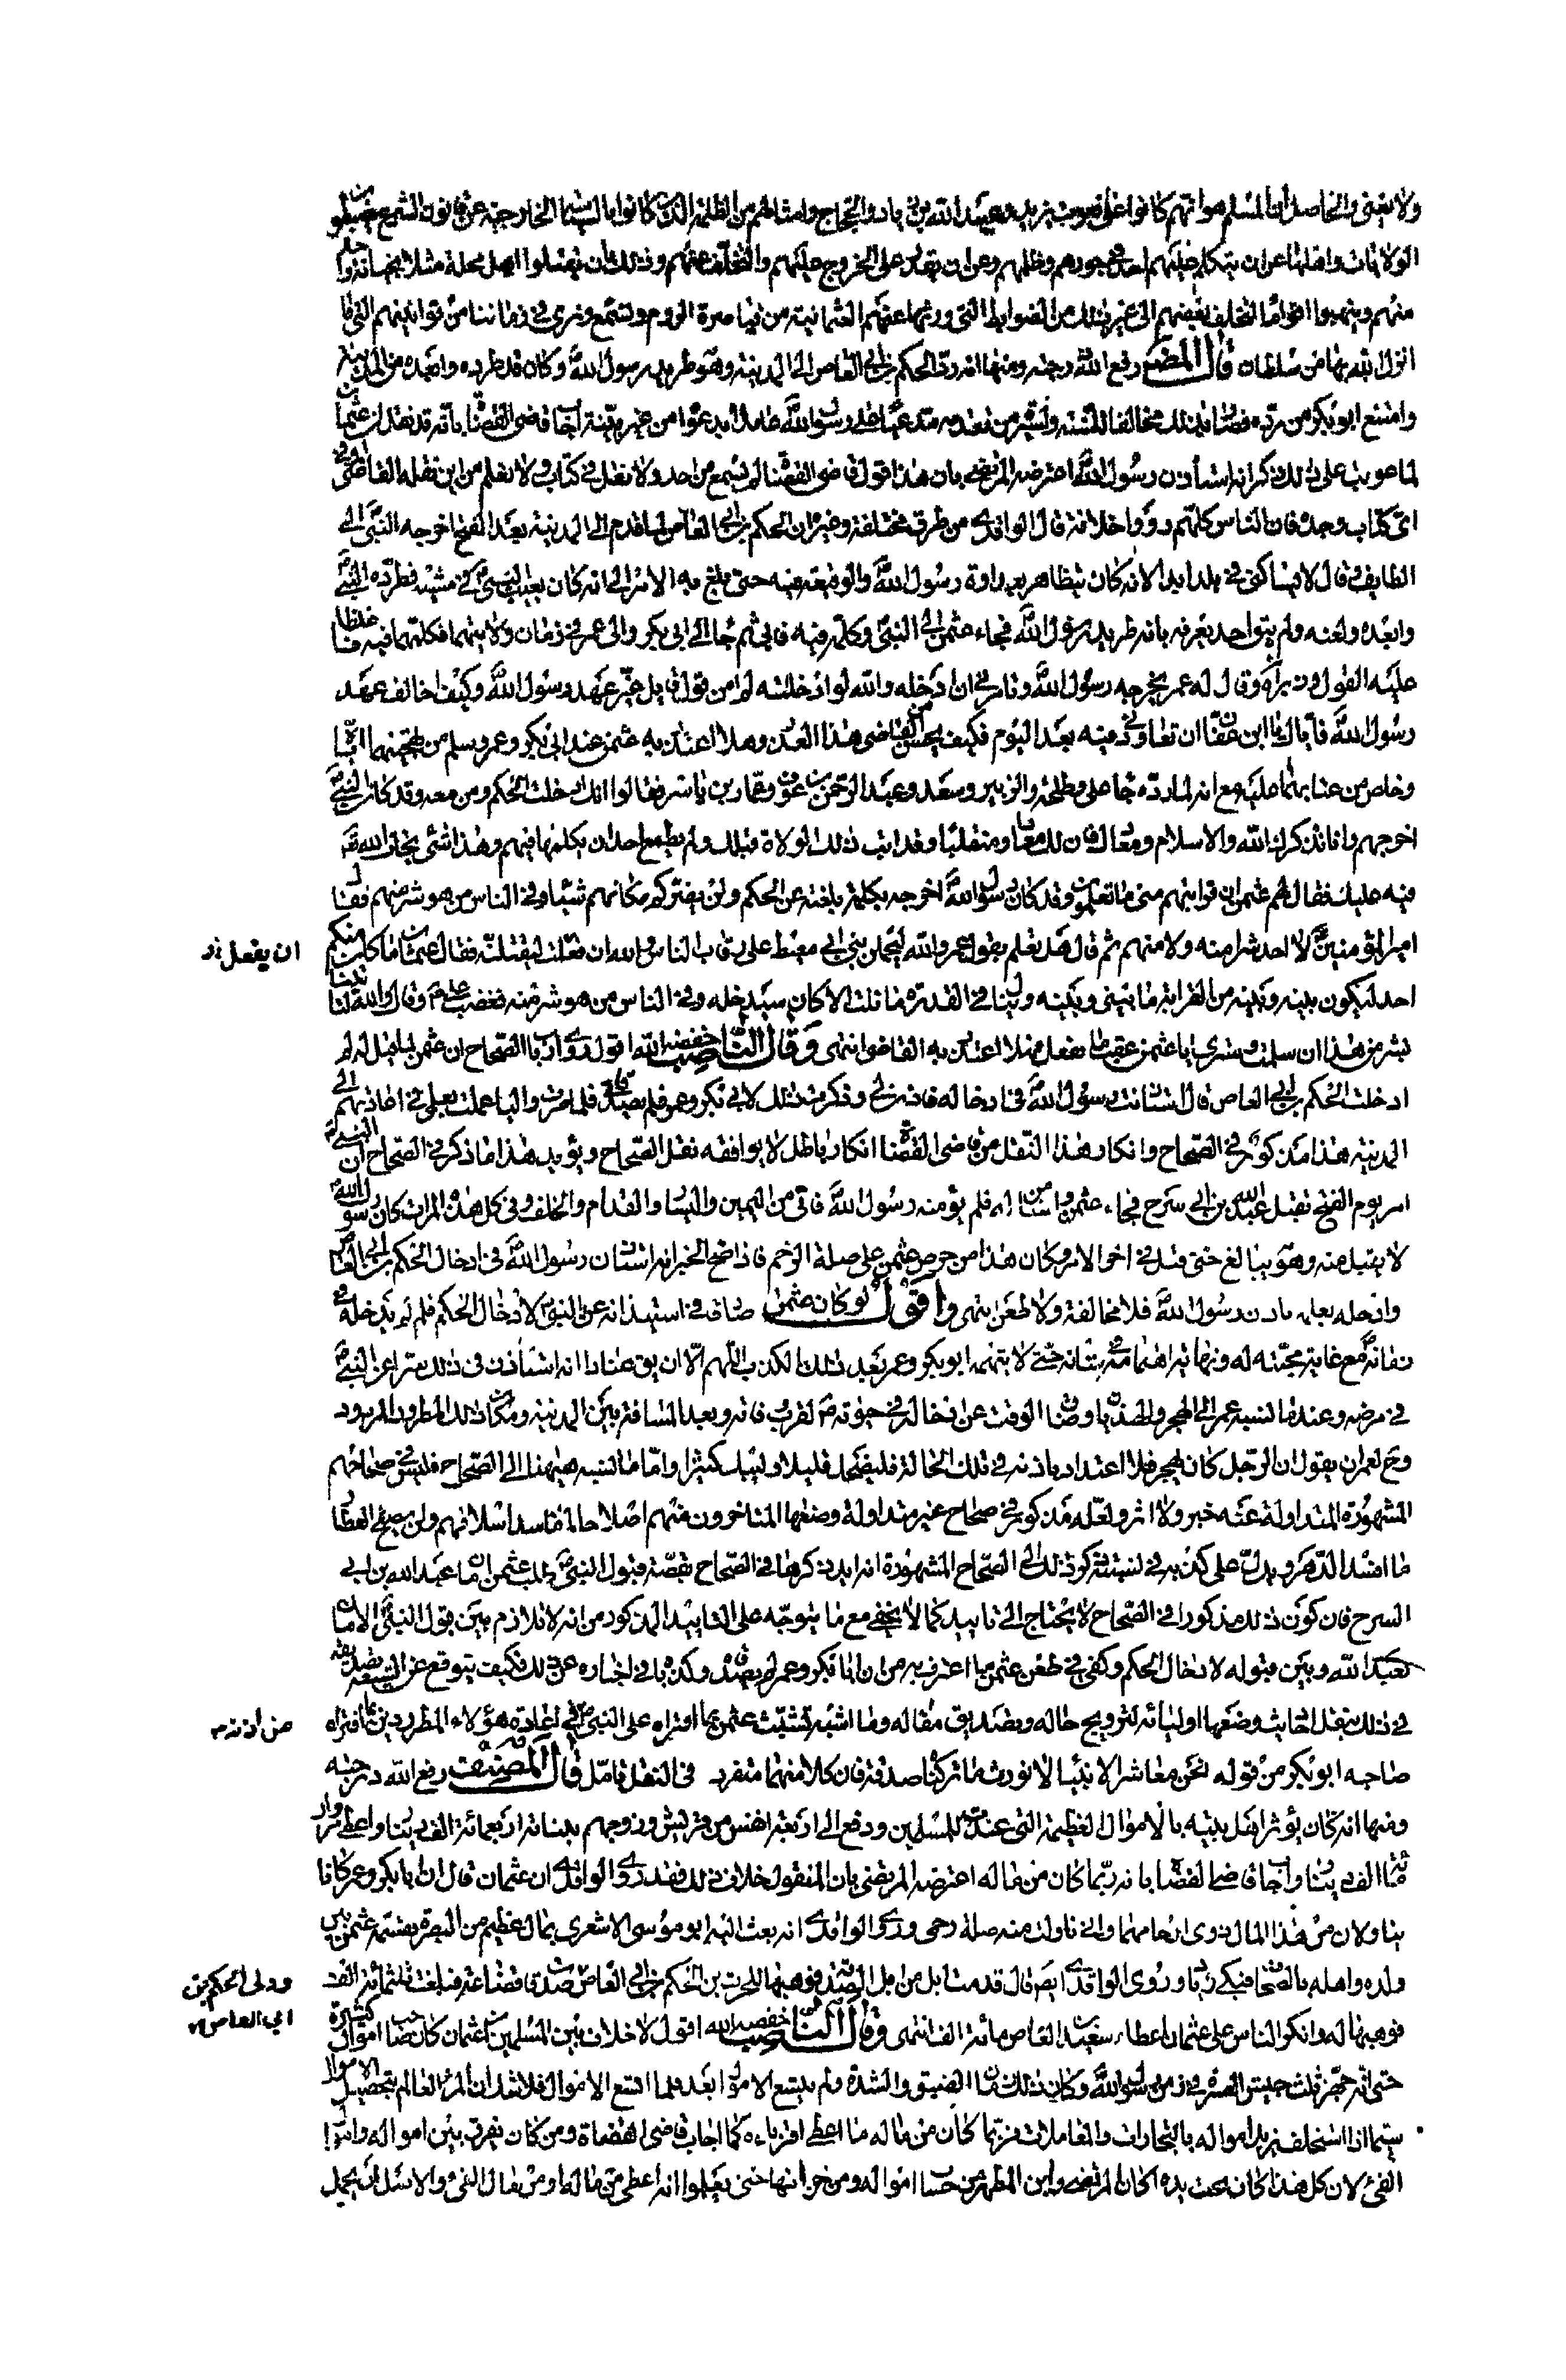 ولا يغنى والحاصل ان المسلم هو انهم كانوا على يزيد وعبيد الله بن زياد والحجاج وامثالهم من الظلمة الذين كانوا بالسياسة الخارجة عن قانون الشرع
الولايات عن ان يتكلم عليهم احد في جورهم وظلمهم وعن ان يقدر على الخروج عليهم والتخلف عنهم وذلك بان يقتلوا اهل محلة مثلا بخيانة واحد
منهم وينهبوا اقواما لتخلف بعضهم الى غير ذلك من الضوابط التي ورثها عنهم العثمانية من قياصرة الروم ونسمع ونرى في زماننا من قوانينهم التي ما
انزل الله بها من سلطان قال المصنف رفع الله درجته ومنها انه رد الحكم بن ابي العاص الى المدينة وهو طريد رسول الله وكان قد طرده وابعده من المدينة
وامتنع ابو بكر من رده فصار بذلك مخالفا للسنة ولسيرة من تقدمه مدعيا على رسول الله عاملا بدعواه من غير بينة اجاب قاضي القضاة بانه قد نقل ان عثمان
لما عوتب على ذلك ذكر انه استأذن رسول الله اعترضه المرتضى بان هذا قول قاضي القضاة لم يسمع من احد ولا نقل في كتاب ولا نعلم من اين نقله القاضي او في
اي كتاب وجده فان الناس كلهم رووا خلافه قال الواقدي من طرق مختلفة وغيره ان الحكم بن ابي العاص لما قدم الى المدينة بعد الفتح اخرجه النبي الى
الطايف وقال لا يساكنني في بلد ابدا لانه كان يتظاهر بعداوة رسول الله والوقيعة فيه حتى بلغ به الامر الى انه كان يعيب النبي في مشيه فطرده النبي
وابعده ولعنه ولم يبق احد يعرفه بانه طريد رسول الله فجاء عثمن الى النبي وكلمه فيه فابى ثم جاء الى ابي بكر والى عمر في زمان ولايتهما فكلمهما فيه فاغلظا
عليه القول وزبراه وقال له عمر يخرجه رسول الله وتامرني ان ادخله والله لو ادخلته لم امن قول قايل غير عهد رسول الله وكيف اخالف عهد
رسول الله فاياك يا ابن عفان ان تعاودني فيه بعد اليوم فكيف يحسن من القاضي هذا العذر وهلا اعتذر به عثمن عند ابي بكر وعمر وسلم من تهجينهما اياه
وخلص من عتابهما عليه مع انه لما رده جاءه علي وطلحة والزبير وسعد وعبد الرحمن بن عوف وعمار بن ياسر فقالوا انك ادخلت الحكم ومن معه وقد كان النبي
اخرجهم وانا نذكرك الله والاسلام ومعادك فان لك معادا ومنقلبا وقد ابت ذلك الولاة قبلك ولم يطمع احد ان يكلمها فيهم وهذا شيء نخاف الله تعـ
فيه عليك فقال لهم عثمن ان قرابتهم مني ما تعلمون وقد كان رسول الله اخرجه بكلمة بلغته عن الحكم ولن يضركم مكانهم شيئا وفي الناس من هو شر منهم فقال
امير المؤمنين لا احد شر منه ولا منهم ثم قال هل تعلم بقول عمر والله ليحملن بني ابي معيط على رقاب الناس والله ان فعل ليقتلنه فقال عثمان ما كان منكم
ان يفعل
احد ليكون بينه وبينه من القرابة ما بيني وبينه ولينال في القدرة ما نلت الا كان سيدخله وفي الناس من هو شر منه فغضب علي وقال والله لتاتينا
بشر من هذا ان سلمت وسترى يا عثمن غب ما تفعل فهلا اعتذر به القاضي انتهى وقال الناصب خفضه الله اقول روى ارباب الصحاح ان عثمن لما قيل له لم
ادخلت الحكم بن ابي العاص قال استاذنت رسول الله في ادخاله فاذن لي وذكرت ذلك لابي بكر وعمر فلم يصدقاني فلما صرت واليا عملت بعلمي في اعادتهم الى
المدينة هذا مذكور في الصحاح وانكار هذا النقل من قاضي القضاة انكار باطل لا يوافقه نقل الصحاح ويؤيد هذا ما ذكر في الصحاح ان النبي
امر يوم الفتح بقتل عبد الله بن ابي سرح فجاء عثمن واستامن له فلم يؤمنه رسول الله فاتى من اليمين واليسار والقدام والخلف وفي كل هذه المرات كان رسول الله
لا يقبل منه وهو يبالغ حتى قبل في اخر الامر وكان هذا من حرص عثمن على صلة الرحم فاذا صح الخبر انه استاذن رسول الله في ادخال الحكم بن ابي العاص
وادخله بعلمه باذن رسول الله فلا مخالفة ولا طعن انتهى واقول لو كان عثمن صادقا في استيذانه عن النبي لادخال الحكم فلم لم يدخله في
زمانه مع غاية محبته له ونهاية اهتمامه بشانه حتى لا يتهمه ابو بكر وعمر بعد ذلك بالكذب اللهم الا ان يق عنادا انه استاذن في ذلك سترا عن النبي
في مرضه وعندما نسبه عمر الى الهجر والهذيان وضاق الوقت عن ادخاله في حيوته لقرب فاته وبعد المسافة بين المدينة ومكان ذلك المطرود المردود
وح لعمر ان يقول ان الرجل كان يهجر فلا اعتداد باذنه في تلك الحالة فليضحك قليلا وليبك كثيرا واما ما نسبه هيهنا الى الصحاح فليس في صحاحهم
المشهورة المتداولة عنه خبر ولا اثر ولعله مذكور في صحاح غير متداولة وضعها المتاخرون منهم اصلاحا لمفاسد اسلافهم ولن يصلح العطار
ما افسد الدهر ويدل على كذبه في نسبته ذلك الى الصحاح المشهورة انه ايد ذكرها في الصحاح بقصة قبول النبي طلب عثمن امان عبد الله بن ابي
السرح فان كون ذلك مذكورا في الصحاح لا يحتاج الى تاييد كما لا يخفى مع ما يتوجه على التاييد المذكور من انه لا تلازم بين قبول النبي الامان
لعبد الله وبين قبوله لادخال الحكم وكفى في طعن عثمن ما اعترف به من ان ابا بكر وعمر لم يصدقاه وكذباه في اخباره عن ذلك فكيف يتوقع عن الشيعة تصديقه
في ذلك بنقل احاديث وضعها اوليائه لترويج حاله وتصديق مقاله وما اشبه تشبث عثمن بما افتراه على النبي في اعادة هؤلاء المطرودين بما افتراه
من اذنه
صاحبه ابو بكر من قوله نحن معاشر الانبياء لا نورث ما تركناه صدقة فان كلا منهما متفرد في النقل فتامل قال المصنف رفع الله درجته
ومنها انه كان يؤثر اهل بيته بالاموال العظيمة التي عند المسلمين ودفع الى اربعة انفس من قريش وزوجهم ببناته اربعمائة الف دينار واعطى مروان
مائة الف دينار واجاب قاضي القضاة بانه ربما كان من ماله اعترضه المرتضى بان المنقول خلاف ذلك فقد روى الواقدي ان عثمان قال ان ابا بكر وعمر كانا
يناولان من هذا المال ذوي ارحامهما واني ناولت منه صلة رحمي وروى الواقدي انه بعث اليه ابو موسى الاشعري بمال عظيم من البصرة يقسمه عثمن بين
ولده واهله بالصحاف فبكى زياد وروى الواقدي ايض قال قدمت ابل من ابل الصدقة فوهبها للحرث بن الحكم بن ابي العاص صدقات قضاعة فبلغت ثلثمائة الف
وولى الحكم بن
ابي العاص
فوهبها له وانكر الناس على عثمان اعطاء سعيد بن العاص مائة الف انتهى وقال الناصب خفضه الله اقول لا خلاف بين المسلمين ان عثمان كان صاحب اموال كثيرة
حتى انه جهز ثلث جيش العسرة في زمن رسول الله وكان ذلك زمان الضيق والشدة ولم يتسع الاموال بعد فلما اتسع الاموال فلا شك ان المرء العالم بتحصيل الاموال
سيما اذا استخلف يزيد امواله بالتجارات والمعاملات فربما كان من ماله ما اعطى اقرباءه كما اجاب قاضي القضاة ومن كان يفرق بين امواله واموال
الفيء لان كل هذا كان تحت يده اكان المرتضى وابن المطهر من حساب امواله ومن خزانتها حتى يعلموا انه اعطى من ماله او من مال الفيء والاصل ان يحمل